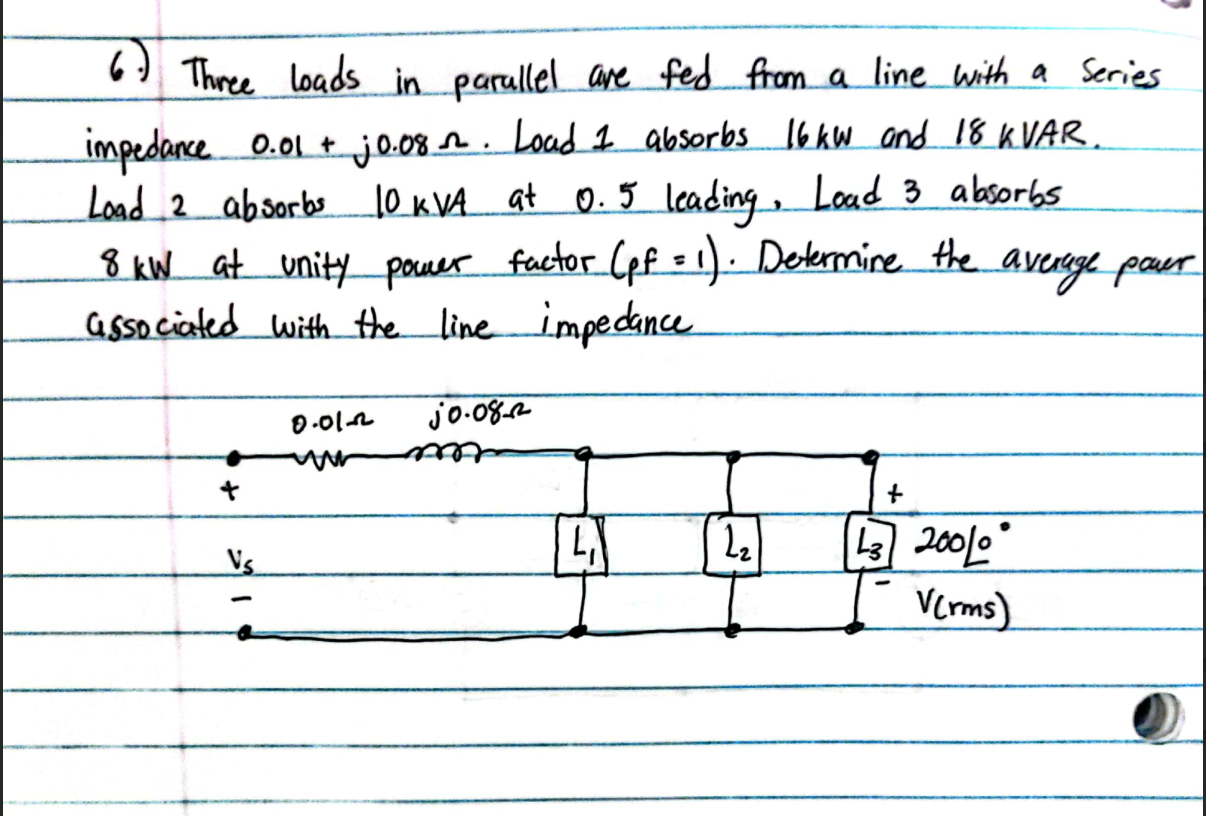 6.) Three loads in parallel are fed from a line with a Series
impedance 0.01 + j0.08 Ω. Load 1 absorbs 16 kW and 18 KVAR.
Load 2 absorbs 10 KVA at 0.5 leading, Load 3 absorbs
8 kW at unity power factor (pf = 1). Determine the average power
associated with the line impedance
0.01Ω j0.08Ω
+ +
Vs L₁ L₂ L3 200∠0°
- - V(rms)